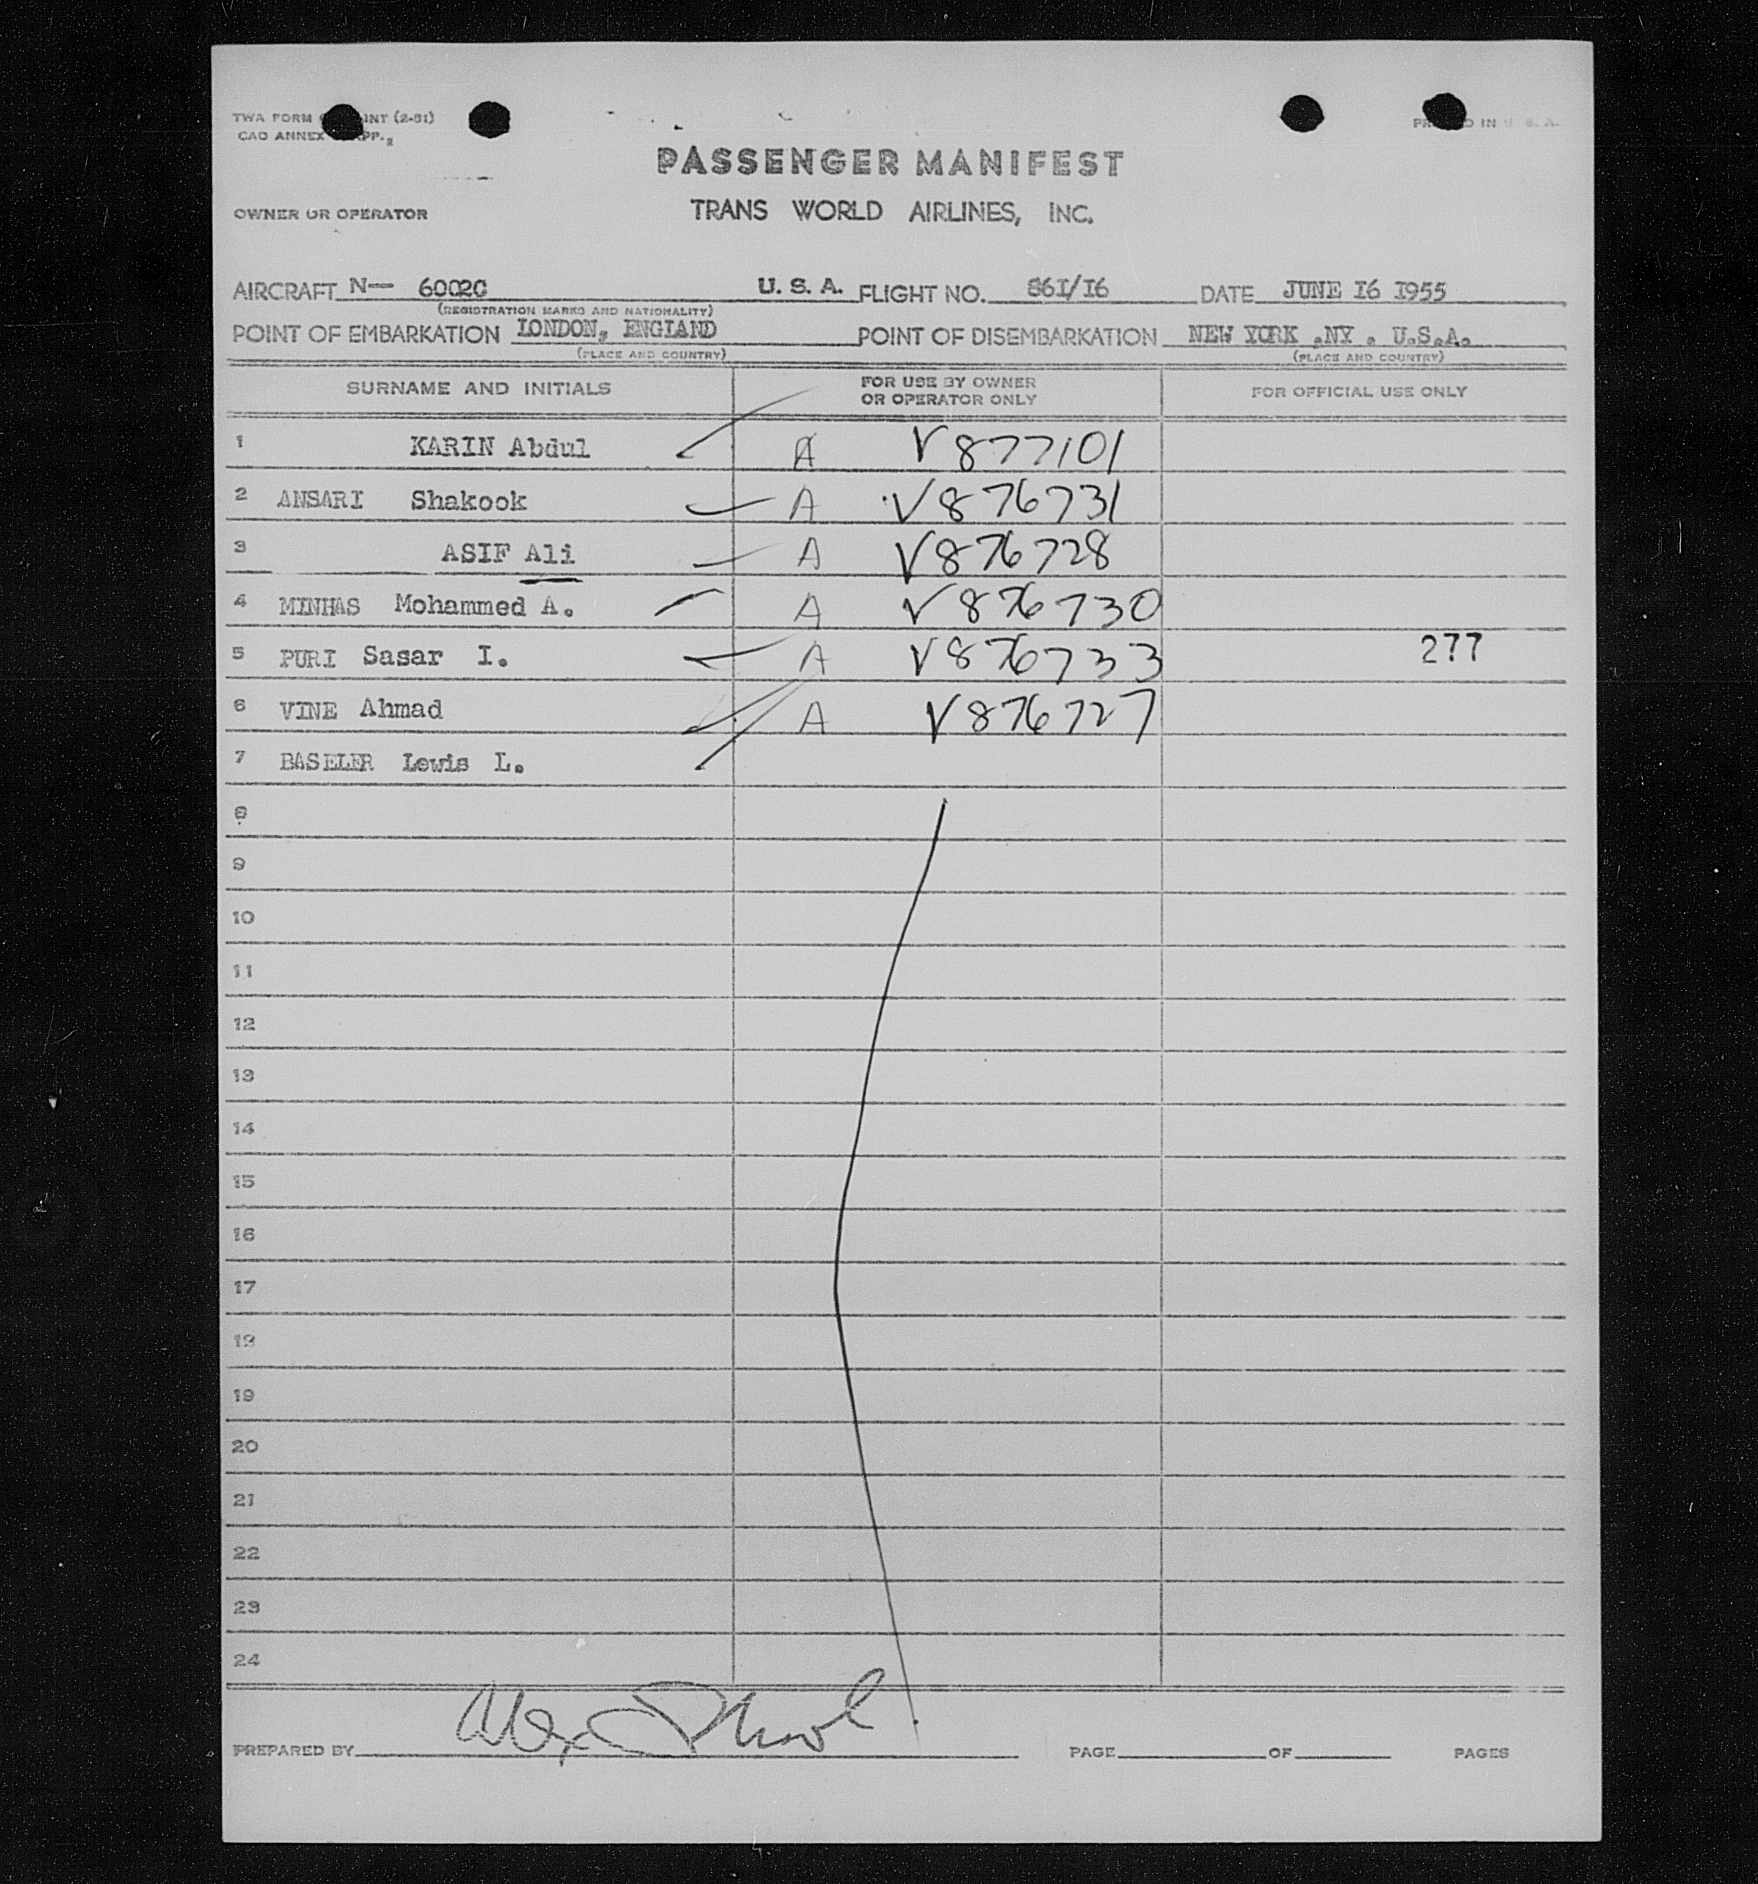 TWA FORM INT (2-51)
CAO ANNEX APP.
PASSENGER MANIFEST
OWNER OR OPERATOR TRANS WORLD AIRLINES, INC.
AIRCRAFT N— 6002C U. S. A. FLIGHT NO. 861/16 DATE JUNE 16 1955
(REGISTRATION MARKS AND NATIONALITY)
POINT OF EMBARKATION LONDON, ENGLAND POINT OF DISEMBARKATION NEW YORK ,NY . U.S.A.
(PLACE AND COUNTRY) (PLACE AND COUNTRY)
SURNAME AND INITIALS FOR USE BY OWNER OR OPERATOR ONLY FOR OFFICIAL USE ONLY
1 KARIN Abdul A V877101
2 ANSARI Shakook A V876731
3 ASIF Ali A V876728
4 MINHAS Mohammed A. A V876730
5 PURI Sasar I. A V876733 277
6 VINE Ahmad A V876727
7 BASELER Lewis L.
8
9
10
11
12
13
14
15
16
17
18
19
20
21
22
23
24
PREPARED BY PAGE OF PAGES